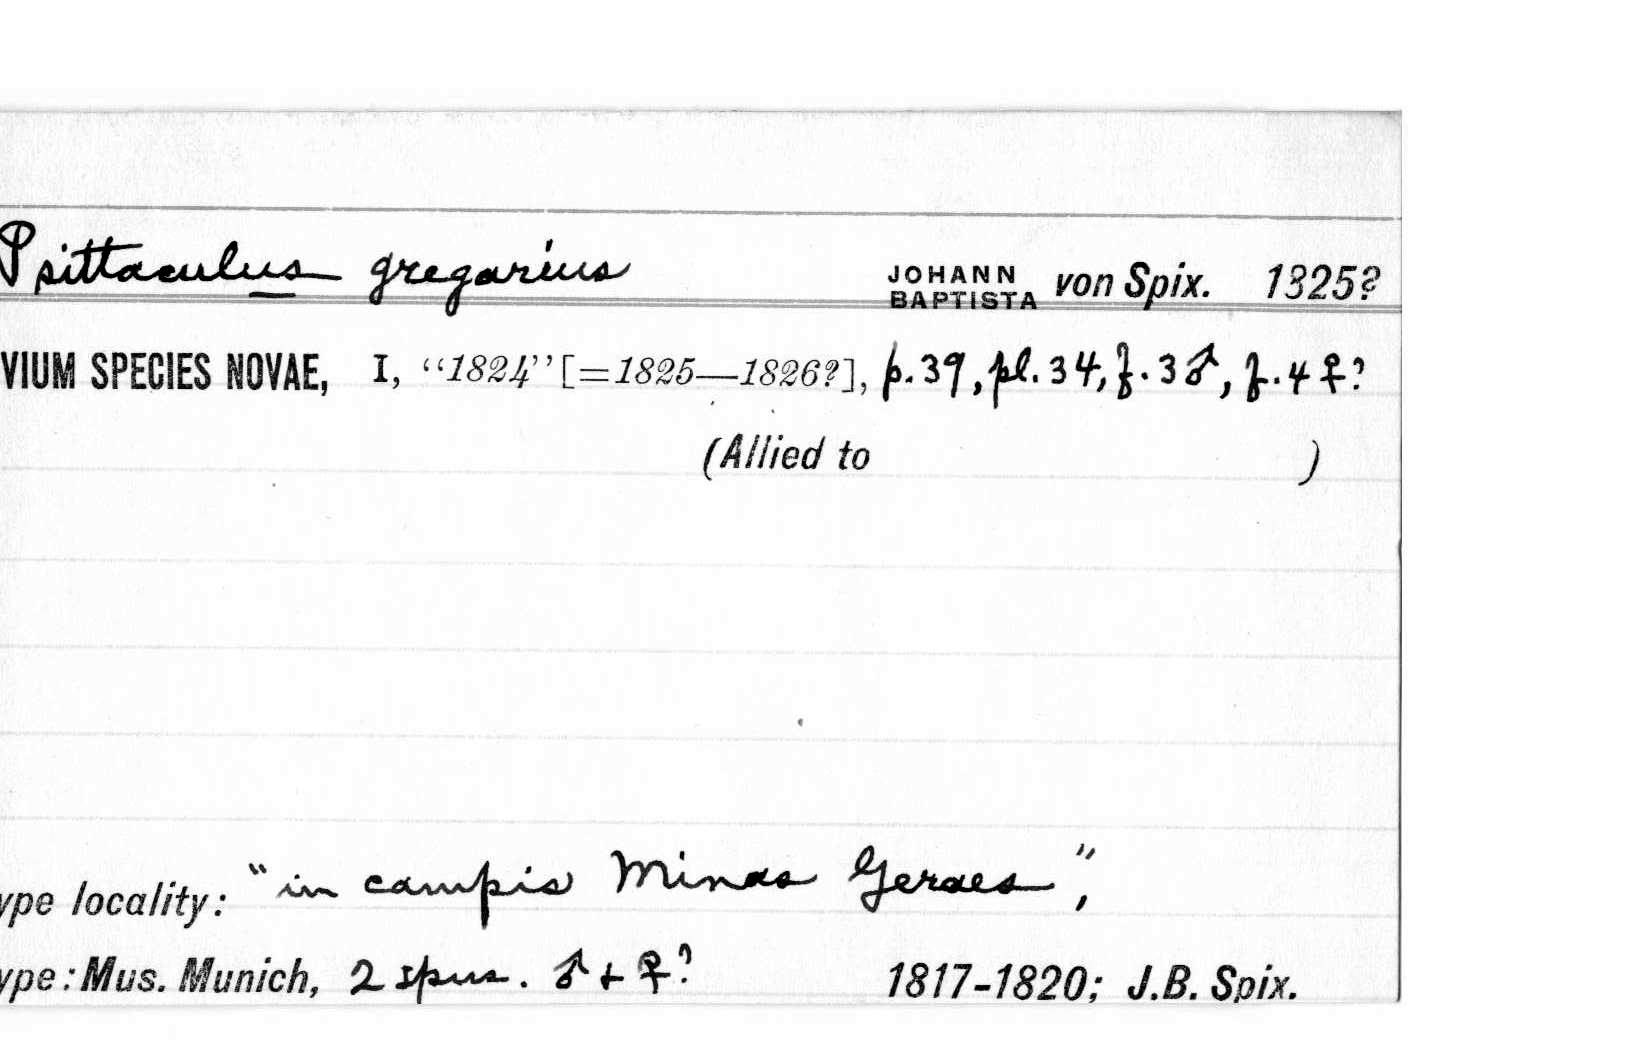 Psittaculus gregarius JOHANN BAPTISTA von Spix. 1825?
VIUM SPECIES NOVAE, I, “1824” [=1825—1826?], p. 39, pl. 34, f. 3 ♂, f. 4 ♀?
(Allied to )
ype locality: "in campis Minas Geraes",
ype: Mus. Munich, 2 spms. ♂ + ♀? 1817-1820; J.B. Spix.